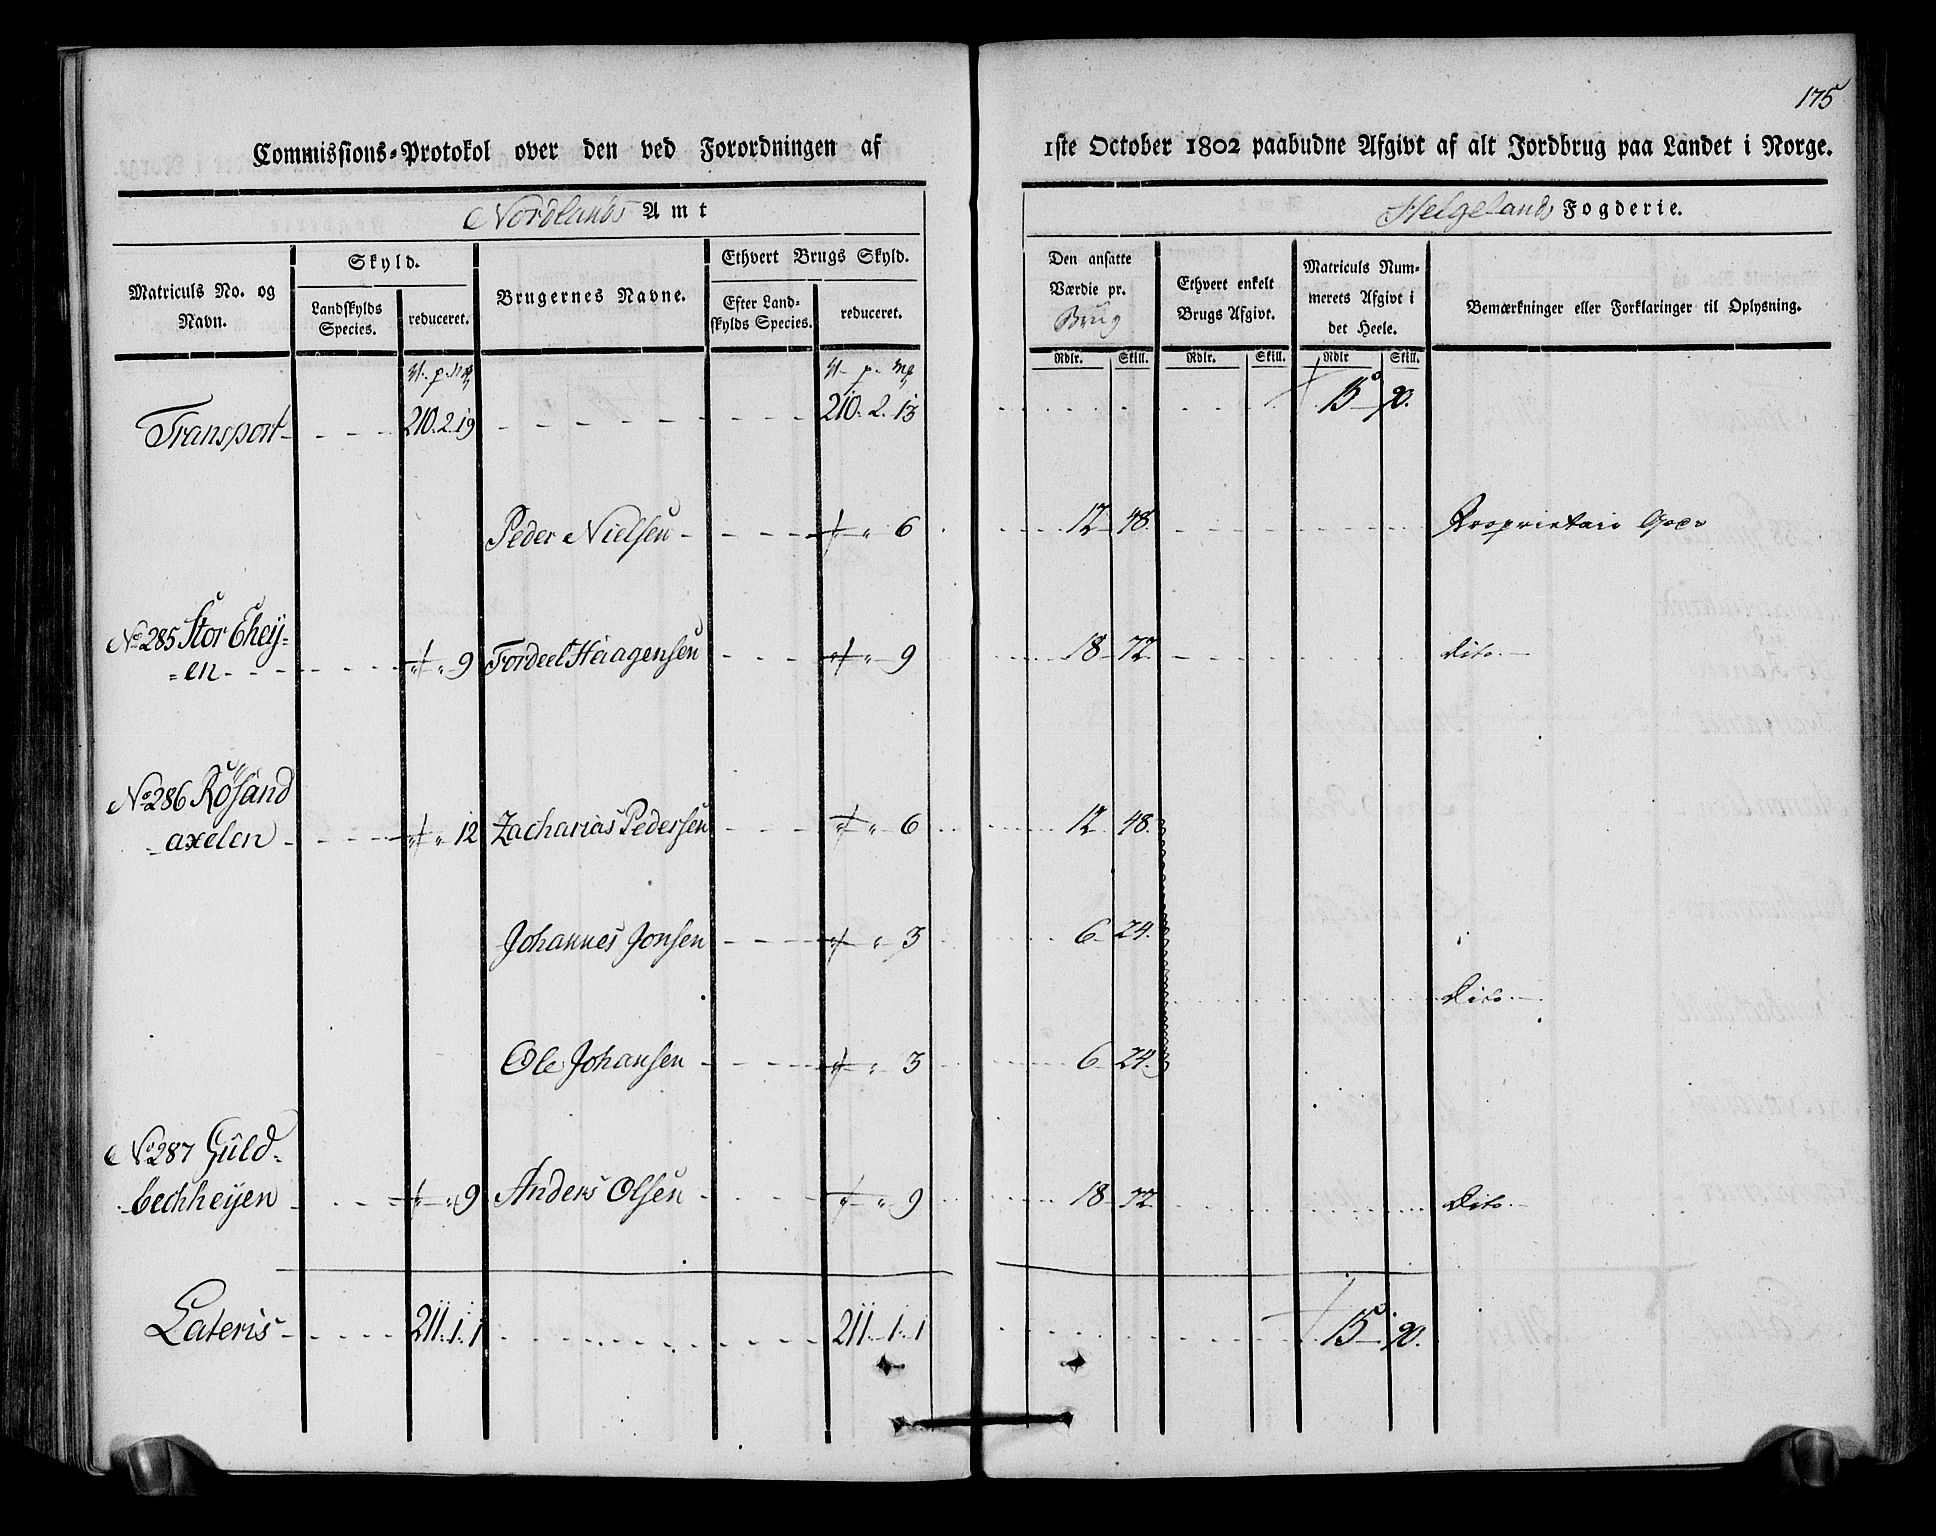 175
Commissions-Protokol over den ved Forordningen af 1ste October 1802 paabudne Afgivt af alt Jordbrug paa Landet i Norge.
Nordlands Amt
Helgelands Fogderie.
Matriculs No. og Navn.
Skyld.
Landskylds Species.
reduceret.
Brugernes Navne.
Ethvert Brugs Skyld.
Efter Landskylds Species.
reduceret.
Den ansatte Værdie pr. Brug
Ethvert enkelt Brugs Afgivt.
Matriculs Nummerets Afgivt i det Heele.
Bemærkninger eller Forklaringer til Oplysning.
Rdlr. Skill. Rdlr. Skill. Rdlr Skill.
Transport 210. 2. 19 210. 2. 13 15 90.
Peder Nielsen 6 12 48. Proprietair
No 285 Stor Eheÿ=
=en 9 Fordeel Haagensen 9 18 72 Dito.
No 286 Rösand
axelen 12 Zacharias Pedersen 6 12 48.
Johannes Jonsen 3 6 24.
Dito.
Ole Johansen 3 6 24.
No 287 Guld=
bechheÿen 9 Anders Olsen 9 18 72 Dito.
Lateris 211. 1. 1 211. 1. 1 15 90.